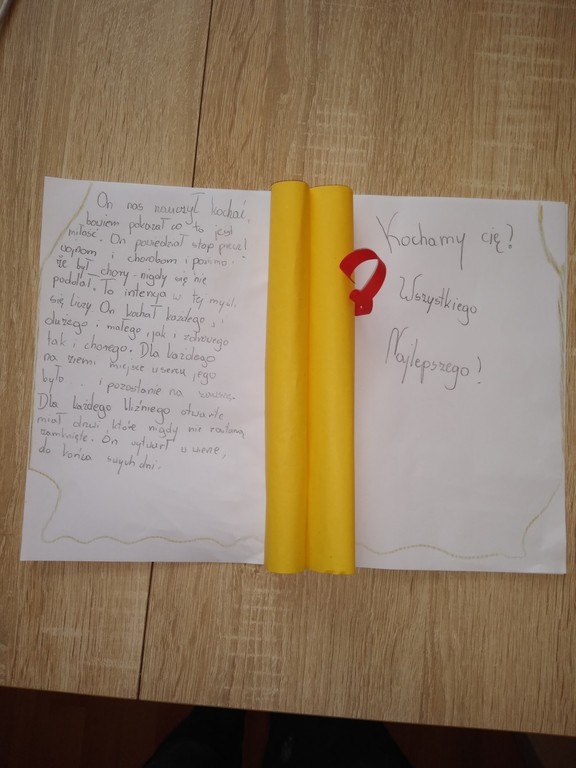 On nas nauczył kochać,
bowiem pokazał co to jest
miłość. On powiedział stop piekl
wojnom i chorobom i pomimo
że był chory nigdy się nie
poddał. To intencja w tej myśl
się liczy. On kochał każdego i
dużego i małego, jak i zdrowego
tak i chorego. Dla każdego
na ziemi miejsce w sercu jego
było... i pozostanie na zawsze.
Dla każdego bliźniego otwarte
miał drzwi, które nigdy nie zostaną
zamknięte. On wytrwał w wierze,
do końca swych dni.
Kochamy cię!
Wszystkiego
Najlepszego!